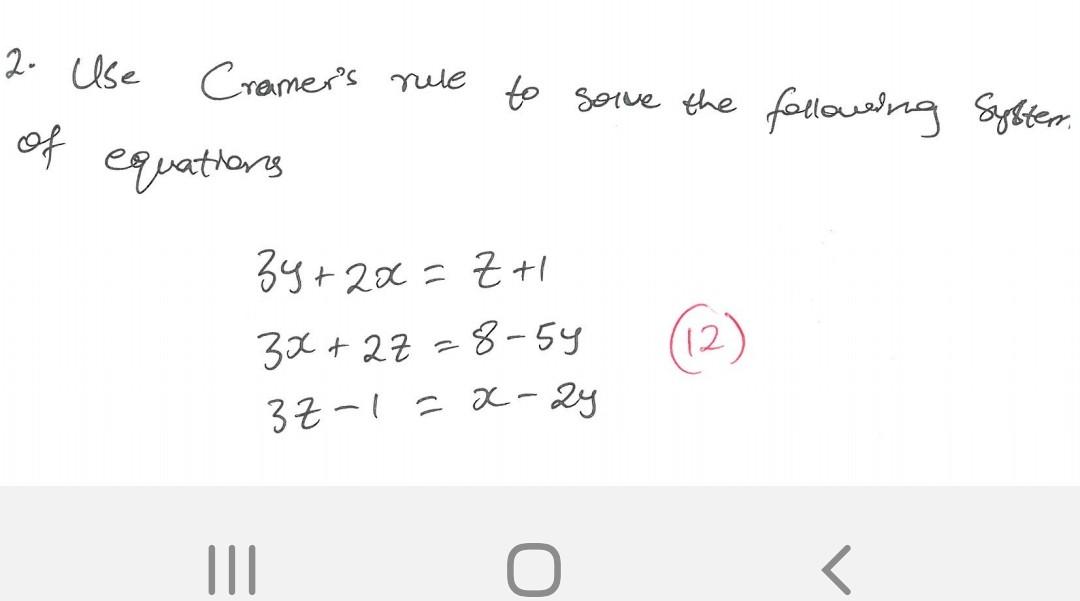 2. Use Cramer's rule to solve the following System
of equations
3y + 2x = z + 1
3x + 2z = 8 - 5y
(12)
3z - 1 = x - 2y